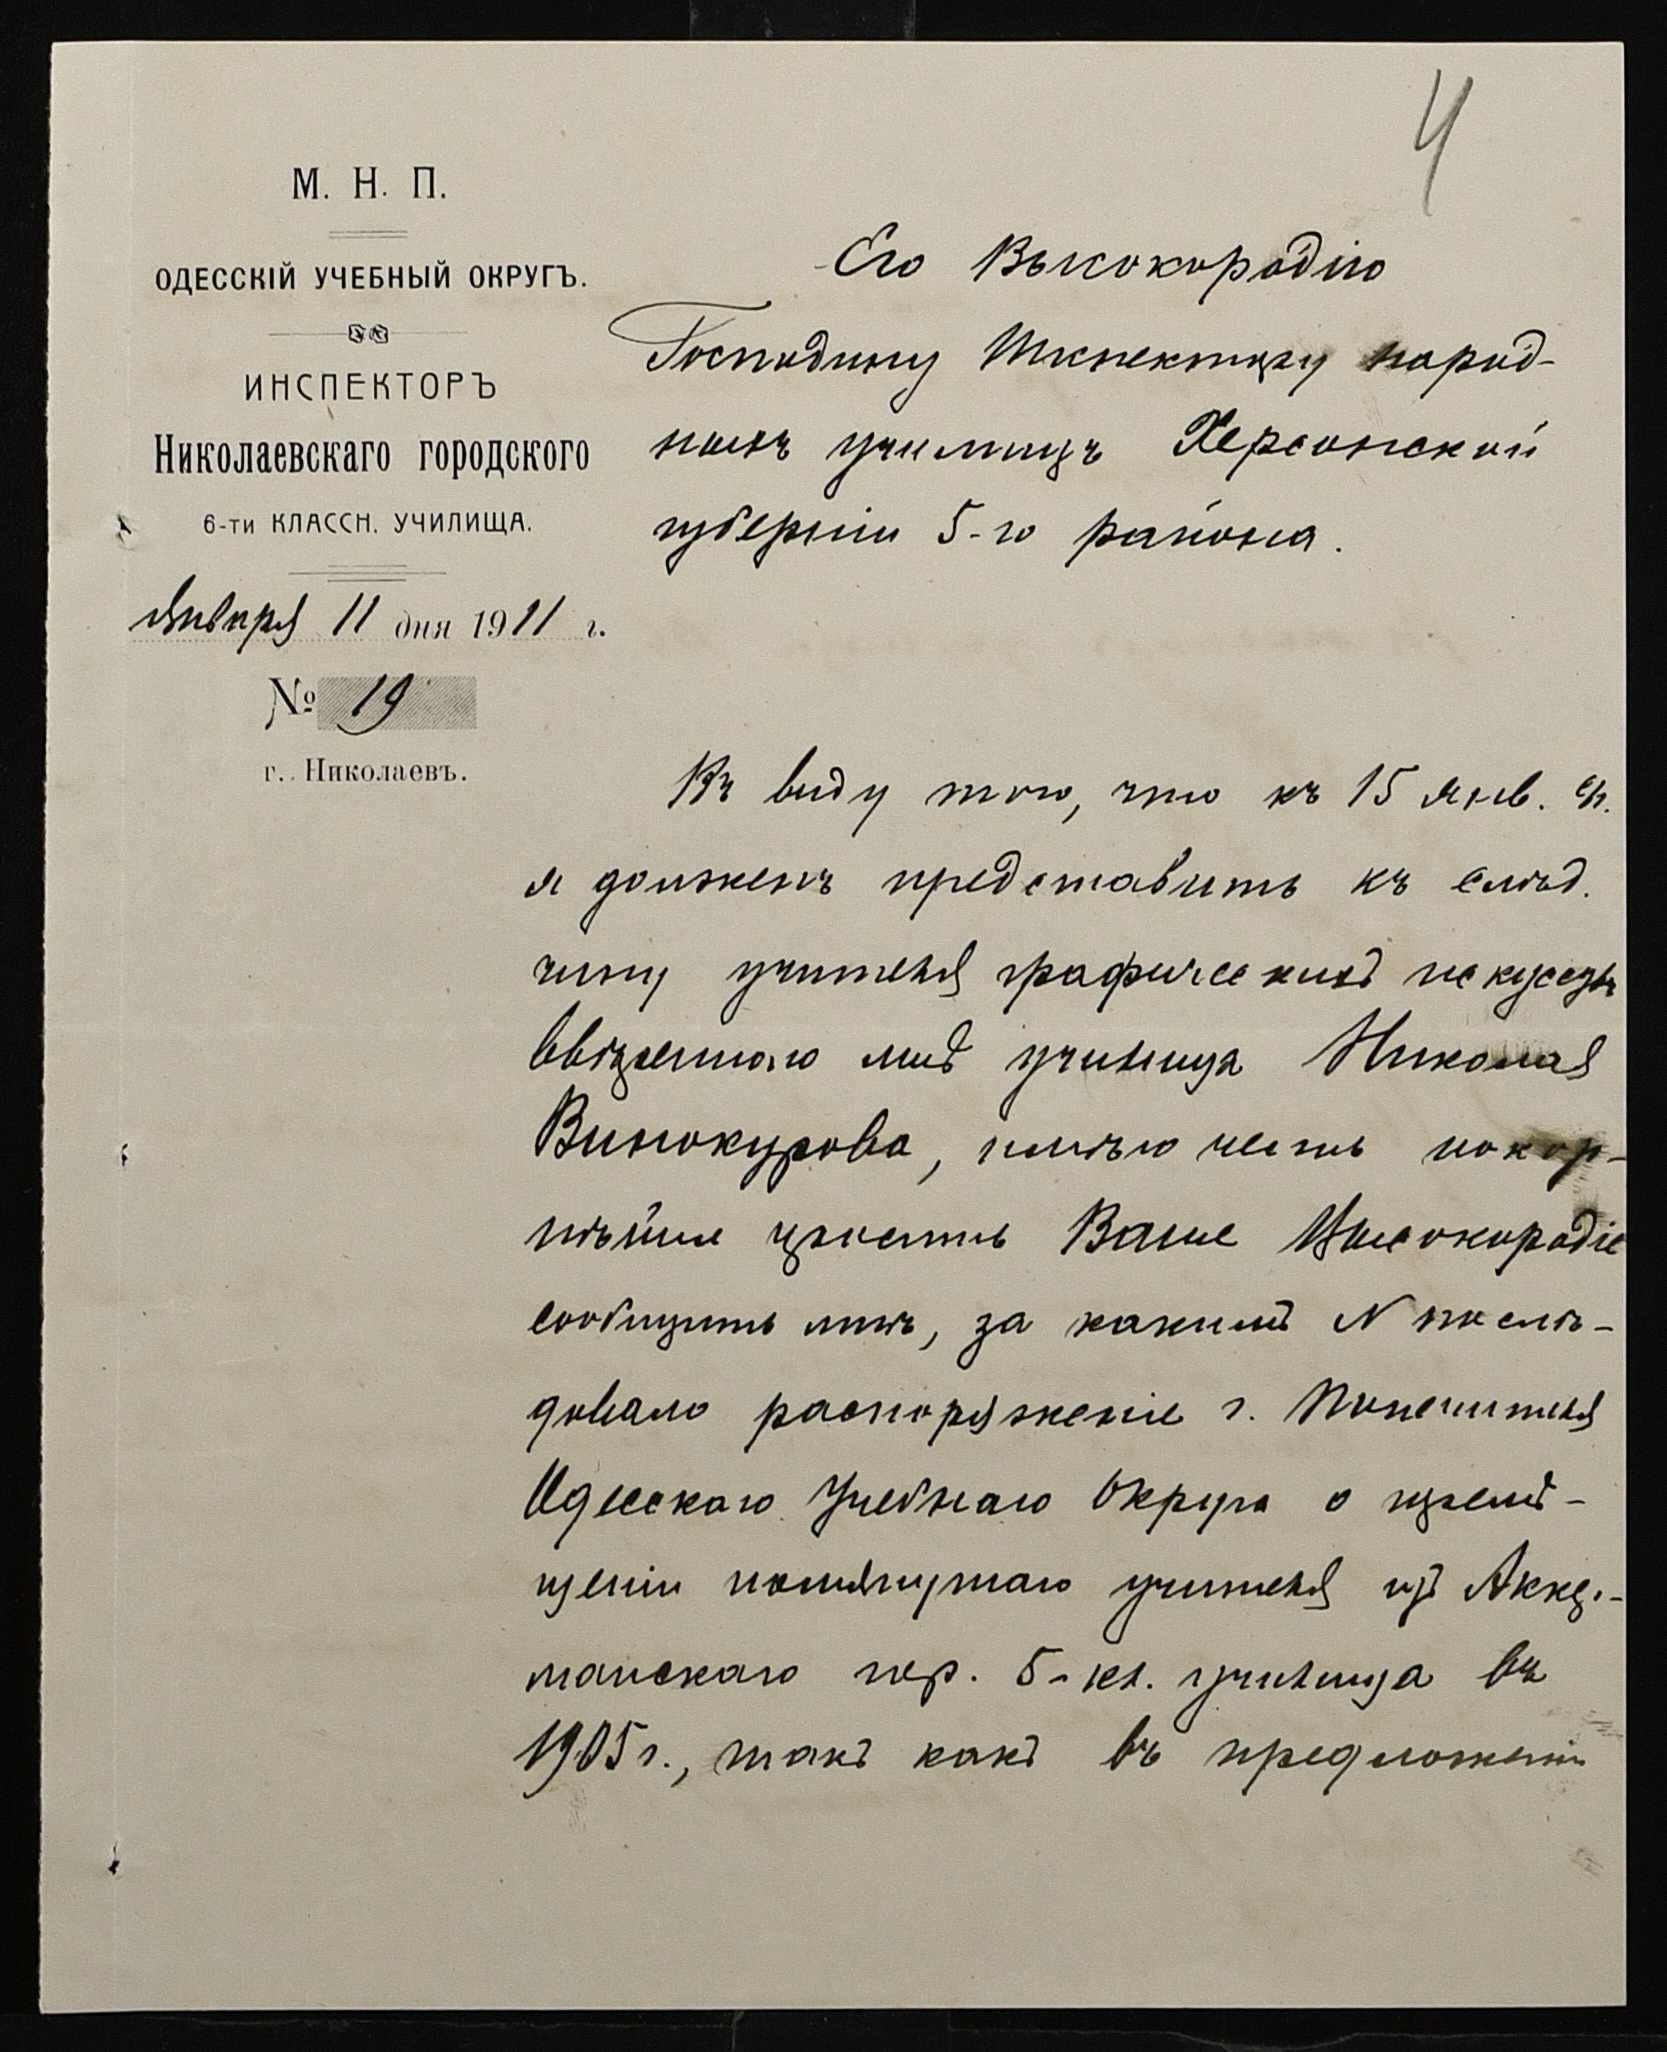 4
М. Н. П.
ОДЕССКІЙ УЧЕБНЫЙ ОКРУГЪ.
ИНСПЕКТОРЪ
Николаевскаго городского
6-ти КЛАССН. УЧИЛИЩА.
января 11 дня 1911 г.
№ 19
г. Николаевъ.
Его Высокородію
Господину Инспектору народ-
ныхъ училищъ Херсонской
губерніи 5-го района.
Въ виду того, что къ 15 янв. с.г.
я долженъ представить къ слѣд.
чину учителя графическихъ искусствъ
ввѣреннаго мнѣ училища Николая
Винокурова, имѣю честь покор-
нѣйше просить Ваше Высокородіе
сообщить мнѣ, за какимъ N послѣ-
довало распоряженіе г. Попечителя
Одесскаго Учебнаго Округа о перемѣ-
щеніи помянутаго учителя изъ Аккер-
манскаго гор. 5-кл. училища въ
1905 г., такъ какъ въ предложеніи